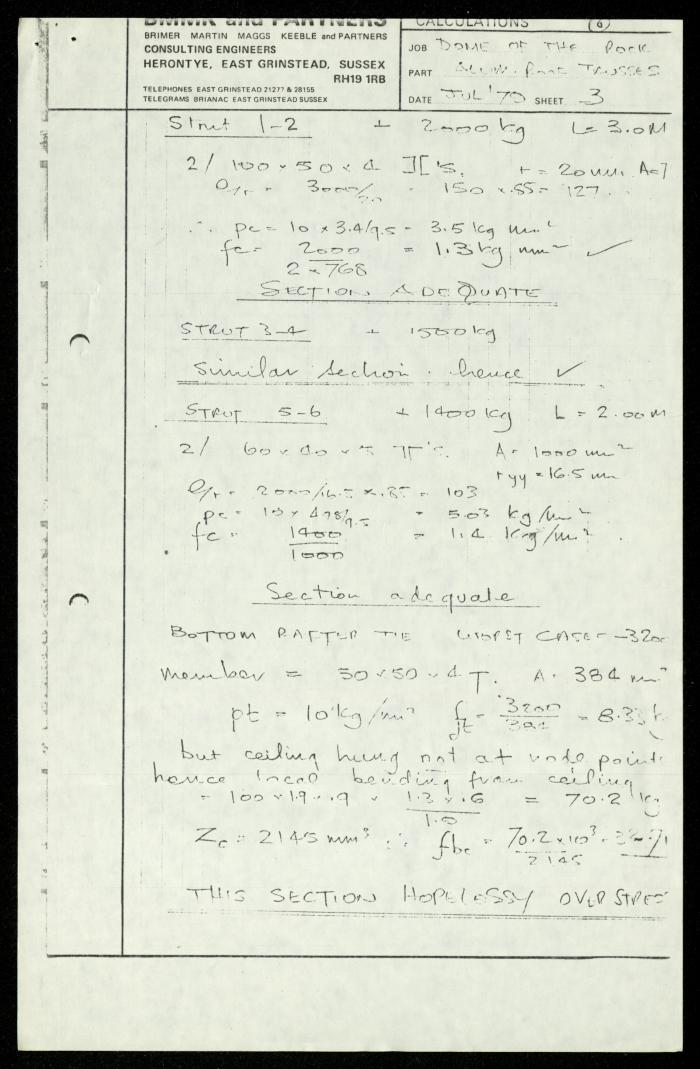 BMMK and PARTNERS
BRIMER MARTIN MAGGS KEEBLE and PARTNERS
CONSULTING ENGINEERS
HERONTYE, EAST GRINSTEAD, SUSSEX
RH19 1RB
TELEPHONES EAST GRINSTEAD 21277 & 28155
TELEGRAMS BRIANAC EAST GRINSTEAD SUSSEX
CALCULATIONS (6)
JOB DOME OF THE ROCK
PART ALUM. ROOF TRUSSES
DATE JUL '79 SHEET 3
Strut 1-2 + 2000 kg L = 3.0 M
2/ 100 × 50 × 4 ][ 'S. r = 20 mm. A=7
l/r = 3000/20 = 150 × .85 = 127.
∴ pc = 10 × 3.4/9.5 = 3.5 kg mm²
fc = 2000 = 1.3 kg mm² ✓
2 × 768
SECTION ADEQUATE
STRUT 3-4 + 1500 kg
Similar section. hence ✓
STRUT 5-6 + 1400 kg L = 2.00 M
2/ 60 × 40 × 5 A = 1000 mm²
ryy = 16.5 mm
l/r = 2000/16.5 × .85 = 103
pc = 10 × 4.78/9.5 = 5.03 kg/m²
fc = 1400 = 1.4 kg/m².
1000
Section adequate
BOTTOM RAFTER TIE WORST CASE = -3200
member = 50 × 50 × 4 T. A = 384 m²
pt = 10 kg/mm² ft = 3200/384 = 8.33 k
but ceiling hung not at node points
hence local bending from ceiling
= 100 × 1.9 × .9 × 1.3 × .6 = 70.2 kg
1.0
Zc = 2145 mm³ ∴ fbc = 70.2 × 10³ =
2145
THIS SECTION HOPELESSY OVERSTRES